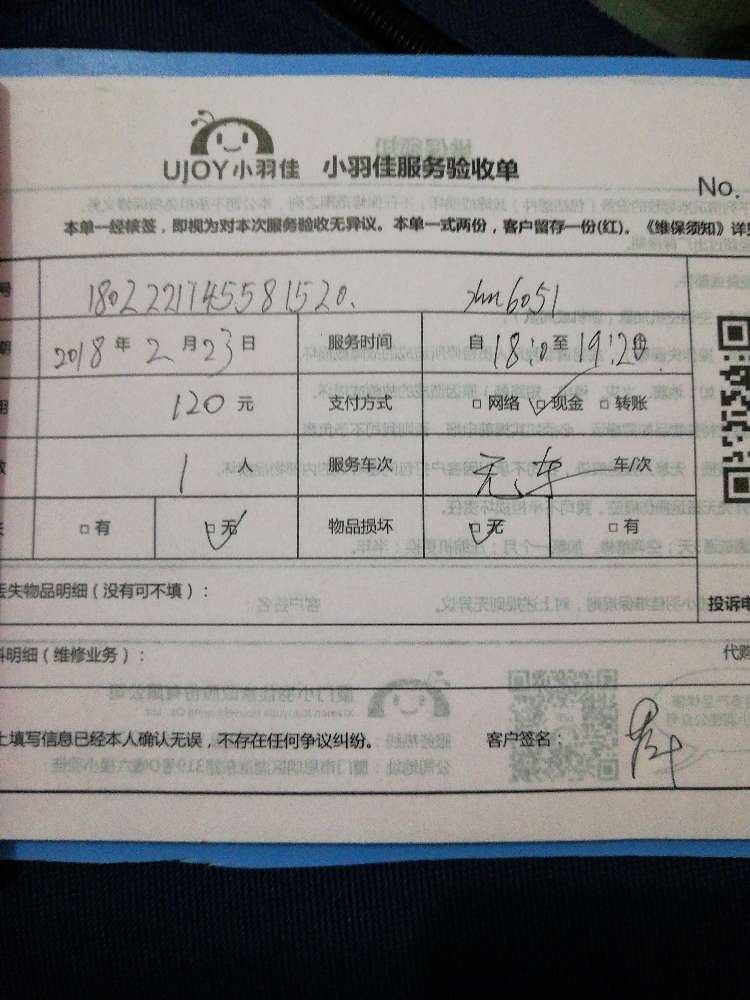 UJOY小羽佳 小羽佳服务验收单
No.
本单一经核签，即视为对本次服务验收无异议。本单一式两份，客户留存一份(红)。《维保须知》详见
号 1802221745581520. xm6051
期 2018 年 2 月 23 日 服务时间 自 18:20 至 19:20 份
用 120 元 支付方式 □ 网络 □ 现金 □ 转账
数 1 人 服务车次 无车 车/次
失 □ 有 □ 无 物品损坏 □ 无 □ 有
丢失物品明细（没有可不填）：
投诉电
料明细（维修业务）：
代购
上填写信息已经本人确认无误，不存在任何争议纠纷。 客户签名：